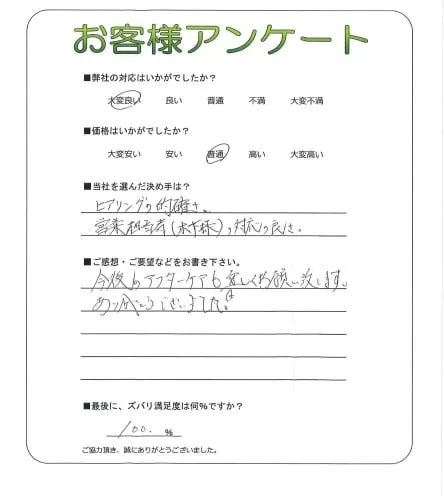 お客様アンケート
■弊社の対応はいかがでしたか？
大変良い 良い 普通 不満 大変不満
■価格はいかがでしたか？
大変安い 安い 普通 高い 大変高い
■当社を選んだ決め手は？
ヒアリングの的確さ。
営業担当者(水井様)の対応の良さ。
■ご感想・ご要望などをお書き下さい。
今後のアフターケアも宜しくお願い致します。
あり がとうございました。
■最後に、ズバリ満足度は何%ですか？
100. %
ご協力頂き、誠にありがとうございました。